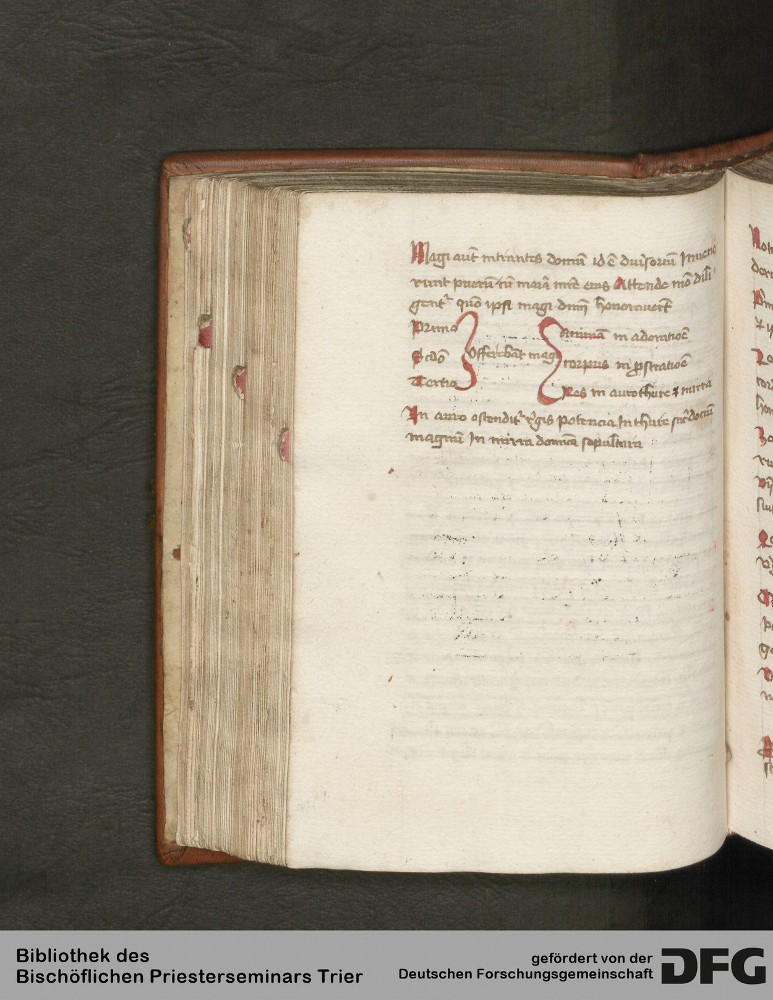 Magi aut intrantes domū id ē diuisoriū Inuene
runt pueru cū maria mre eius Attende mō dili
gent quō ipsi magi dnm honorauert
Primo
Scdo Offerebāt magi
Tertio
animā in adoratioe
corpus in pstratioe
Res in auro thure & mirra
In auro ostendit regis potencia In thure sacdocm
magnū In mirra domnca sepultura
Bibliothek des
Bischöflichen Priesterseminars Trier
gefördert von der
Deutschen Forschungsgemeinschaft
DFG